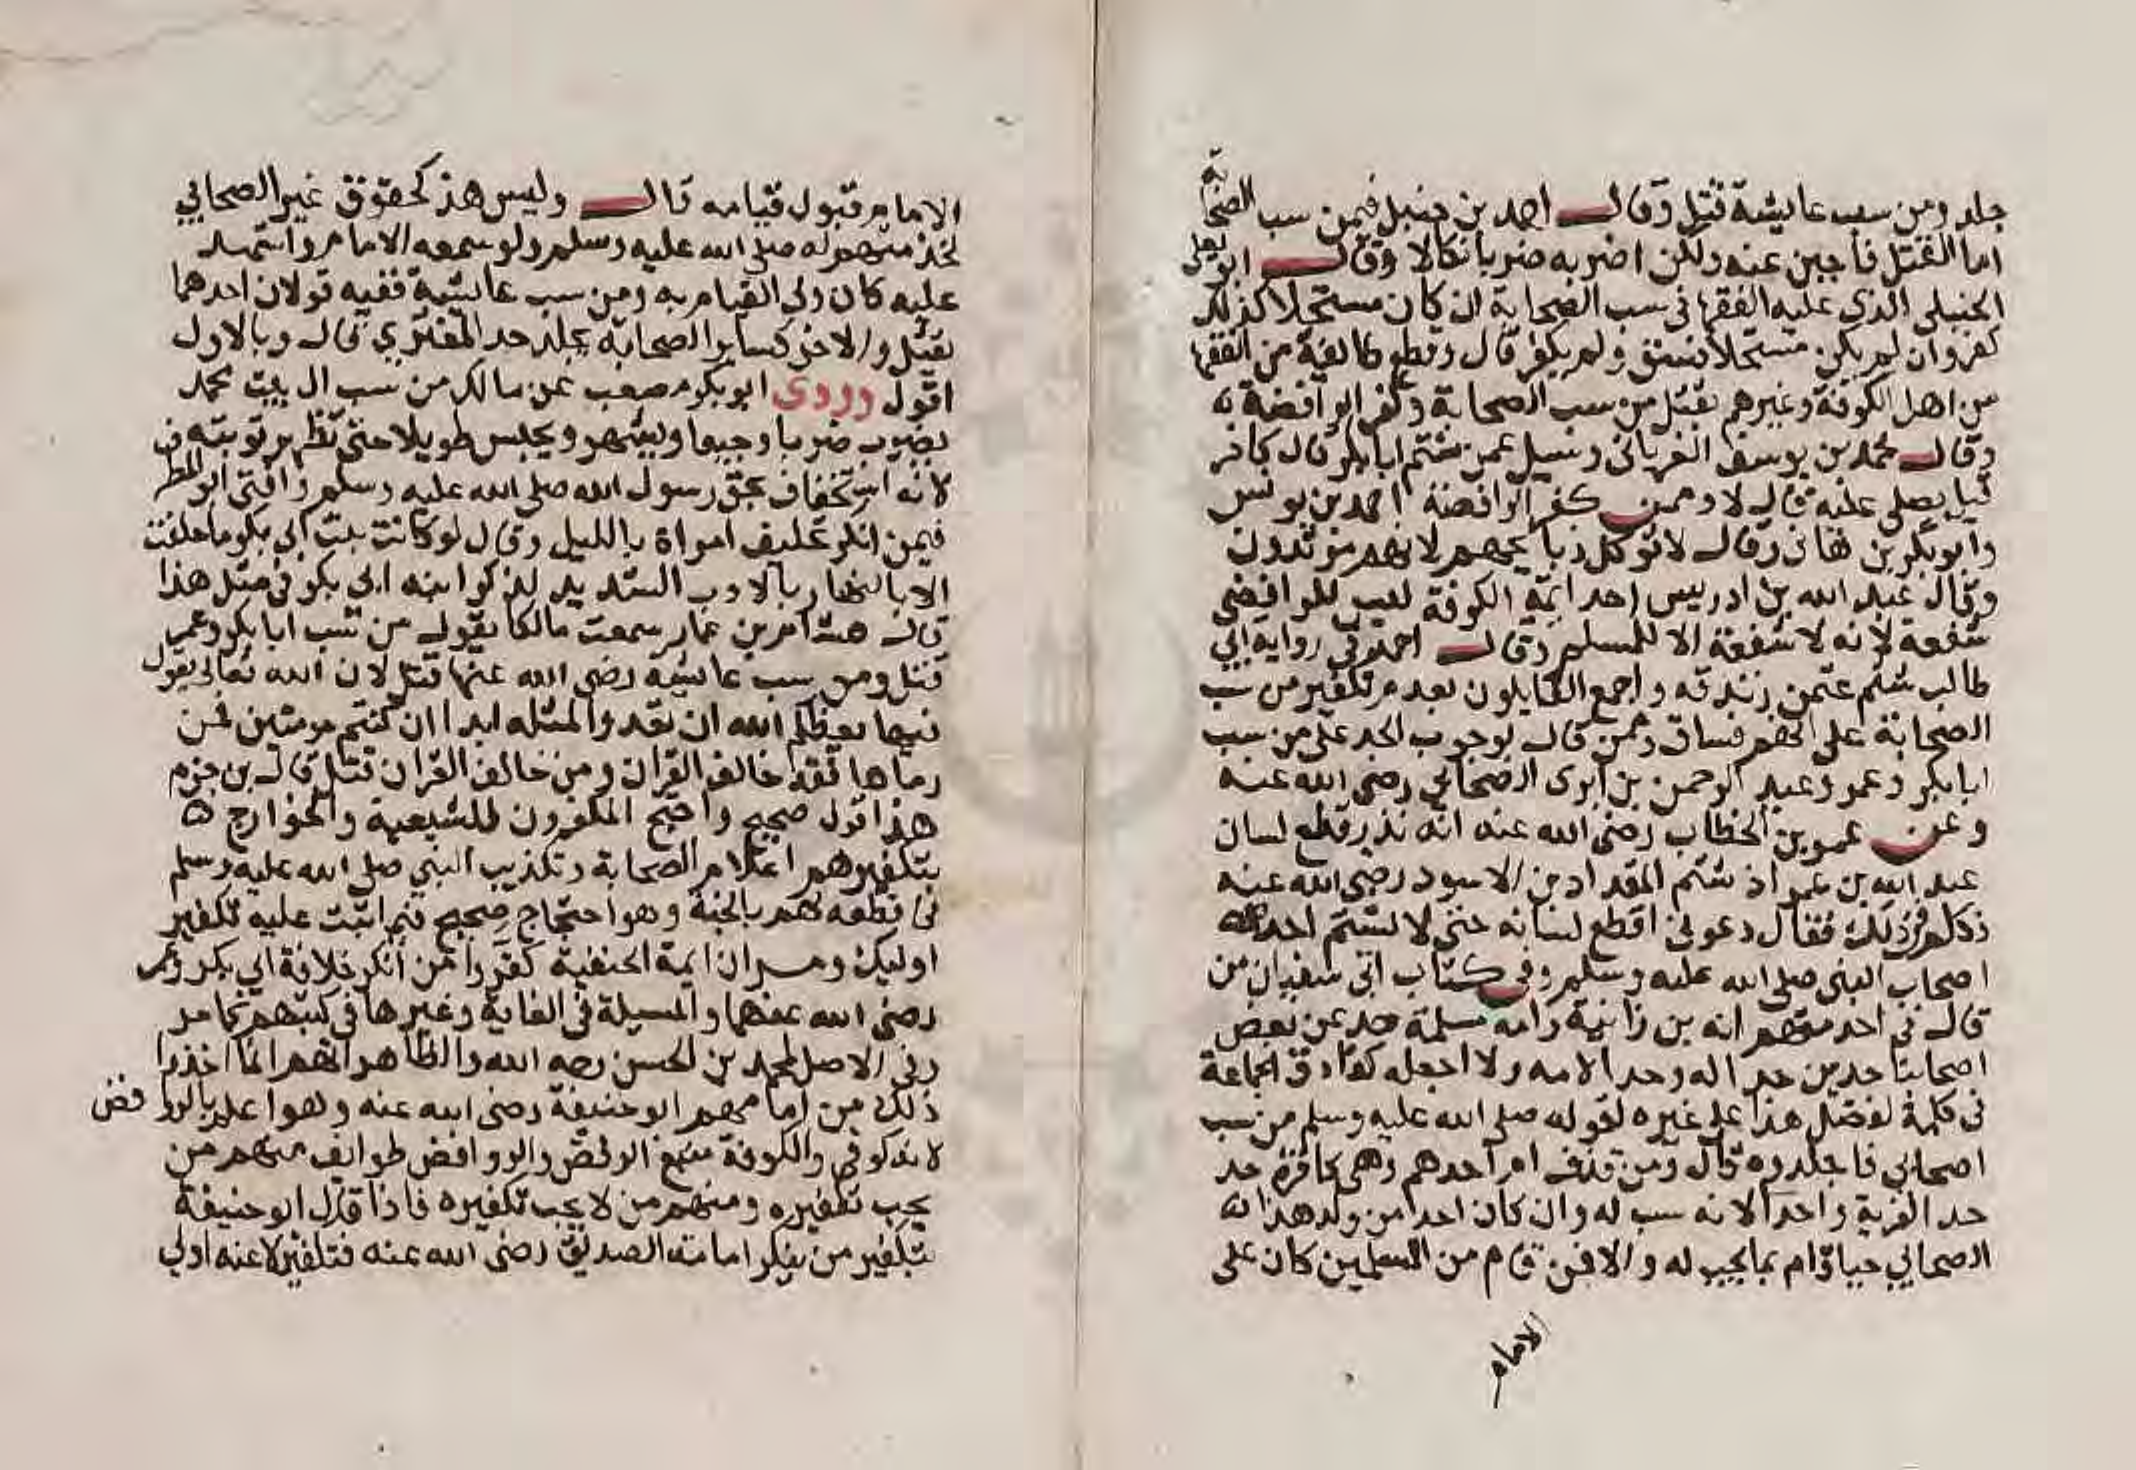 جلد ومن سب عايشة قتل وقال احمد بن حنبل فيمن سب الصحابة
اما القتل فاجبن عنه ولكن اضربه ضربا نكالا وقال ابو يعلى
الحنبلي الذي عليه الفقها في سب الصحابة ان كان مستحلا كذلك
كفر وان لم يكن مستحلا فسق ولم يكفر قال وقطع طايفة من الفقها
من اهل الكوفة وغيرهم بقتل من سب الصحابة وكفر الرافضة
وقال محمد بن يوسف الفريابي وسيل عمن شتم ابا بكر قال كافر
قيل يصلى عليه قال لا وممن كفر الرافضة احمد بن يونس
وابو بكر بن هاني وقال لا توكل ذبايحهم لانهم مرتدون
وقال عبد الله بن ادريس احد ايمة الكوفة ليس للرافضي
شفعة لانه لا شفعة الا للمسلم وقال احمد في رواية ابي
طالب شتم عثمن زندقة واجمع القايلون بعدم تكفير من سب
الصحابة على انهم فساق وممن قال بوجوب الحد على من سب
ابا بكر وعمر وعبد الرحمن بن ابزى الصحابي رضي الله عنه
وعن عمر بن الخطاب رضي الله عنه انه نذر قطع لسان
عبد الله بن عمر اذ شتم المقداد بن الاسود رضي الله عنه
فكلم في ذلك فقال دعوني اقطع لسانه حتى لا يشتم احد
اصحاب النبي صلى الله عليه وسلم وفي كتاب ابن شعبان من
قال في احد منهم انه بن زانية وامه مسلمة حد عن بعض
اصحابنا حدين حدا له وحدا لامه ولا اجعله كقاذف الجماعة
في كلمة لفضل هذا على غيره لقوله صلى الله عليه وسلم من سب
اصحابي فاجلدوه قال ومن قذف ام احدهم وهي كافرة حد
حد الفرية واحدا لانه سب له وان كان احدا من ولد هذا
الصحابي حيا قام بما يجب له والا فمن قام من المسلمين كان على
الامام
الامام قبول قيامه قال وليس هذ كحقوق غير الصحابي
صلى الله عليه وسلم ولو سمعه الامام واشهد
عليه كان ولي القيام به ومن سب عايشة ففيه قولان احدهما
يقتل والاخر كساير الصحابة يجلد حد المفتري قال وبالاول
اقول وروى ابو بكر مصعب عن مالك من سب ال بيت محمد
يضرب ضربا وجيعا ويشهر ويحبس طويلا حتى تظهر توبته
لانه استخفاف بحق رسول الله صلى الله عليه وسلم وافتى ابو المطرف
فيمن انكر تحليف امراة بالليل وقال لو كانت بنت ابي بكر ما حلفت
الا بالنهار بالادب الشديد لذكر ابنة ابي بكر في مثل هذا
قال هشام بن عمار سمعت مالكا يقول من سب ابا بكر وعمر
قتل ومن سب عايشه رضي الله عنها قتل لان الله تعالى يقول
فيها يعظكم الله ان تعودوا لمثله ابدا ان كنتم مومنين فمن
رماها فقد خالف القران ومن خالف القران قتل قال بن حزم
هذا قول صحيح واحتج المكفرون للشيعية والخوارج
بتكفيرهم اعلام الصحابة وتكذيب النبي صلى الله عليه وسلم
في قطعه لهم بالجنة وهو احتجاج صحيح فيم اثبت عليه تكفير
اوليك ومر ان ايمة الحنفية كفروا من انكر خلافة ابي بكر وعمر
رضي الله عنهما والمسيلة في الغاية وغيرها في كتبهم كما مر
وفي الاصل لمحمد بن الحسن رحمه الله والظاهر انهم انما اخذوا
ذلك من امامهم ابو حنيفة رضي الله عنه وهو اعلم بالروافض
لانه كوفي والكوفة منبع الرفض والروافض طوايف منهم من
يجب تكفيره ومنهم من لا يجب تكفيره فاذا قال ابو حنيفة
بتكفير من ينكر امامة الصديق رضي الله عنه فتكفير لاعنه اولى